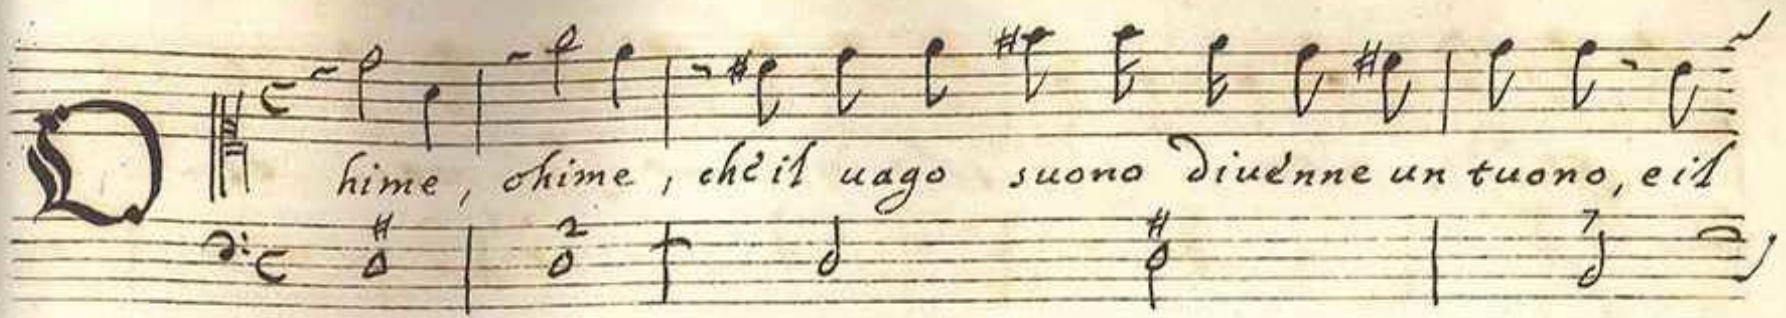 Ohime, ohime, ché il uago suono diuénne un tuono, e il
# 2 # 7